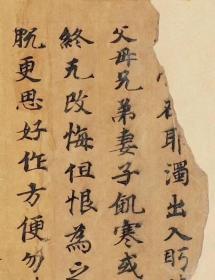 耶濁出入
父母兄弟妻子飢寒或
終无改悔但恨為之
脱更思好作方便勿